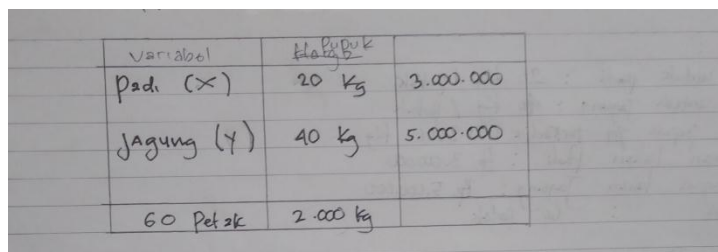 variabel Pupuk
Padi (X) 20 Kg 3.000.000
Jagung (Y) 40 Kg 5.000.000
60 Petak 2.000 Kg